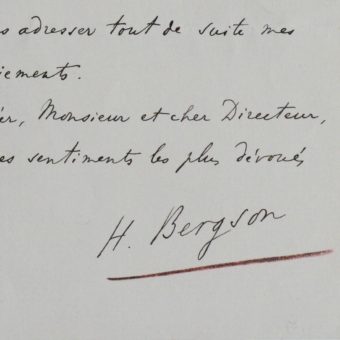 s adresser tout de suite mes
iements.
er, Monsieur et cher Directeur,
es sentiments les plus dévoués
H. Bergson